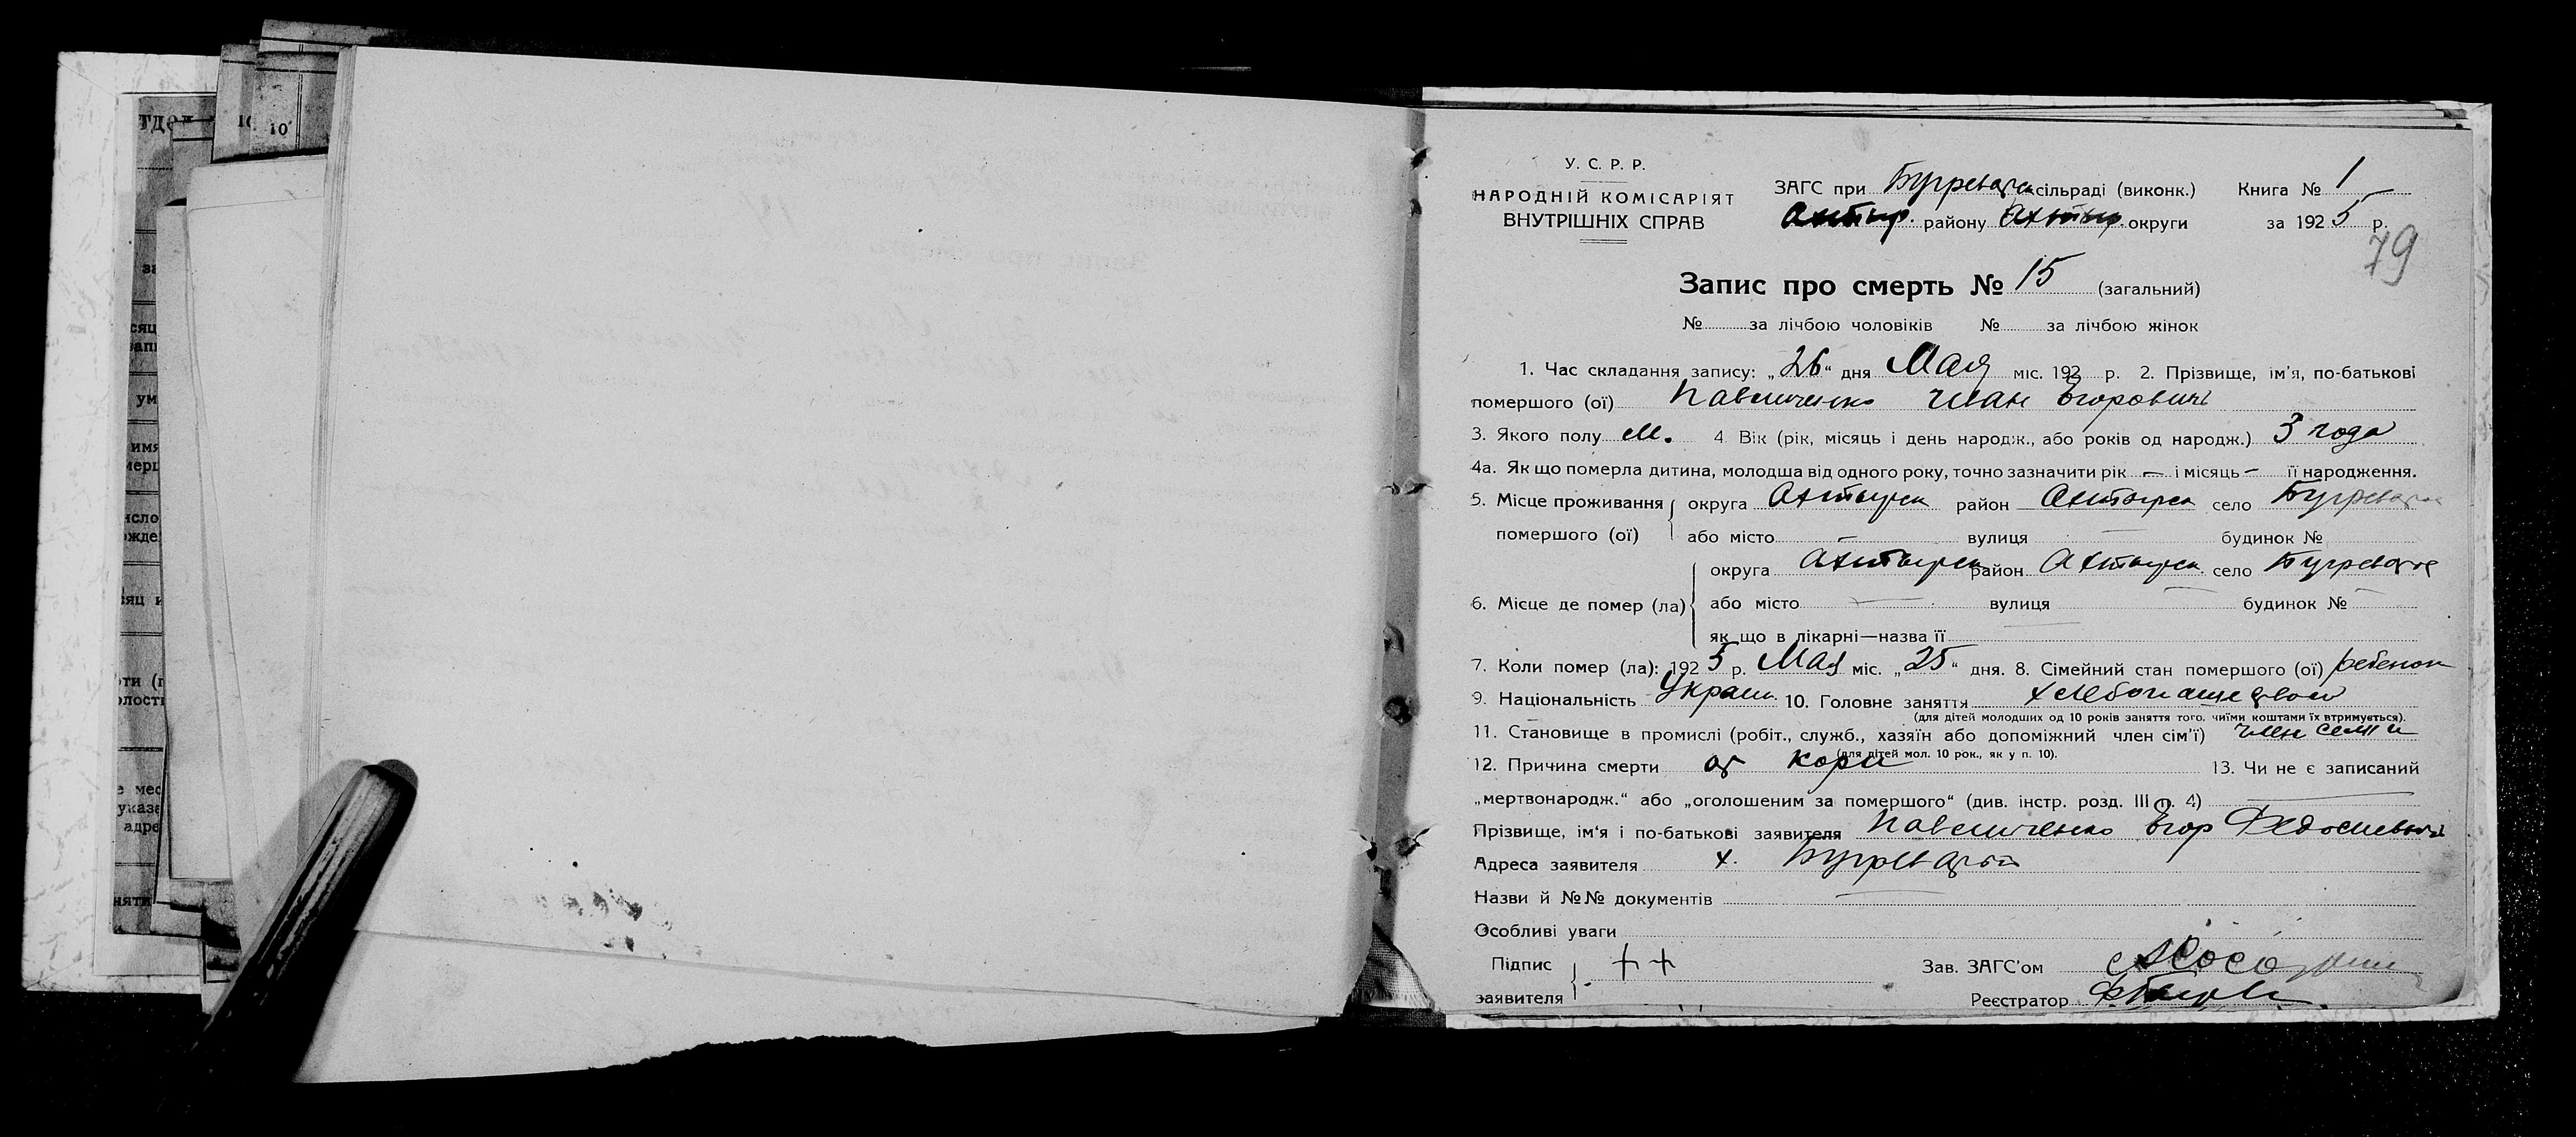 тдел
10
10
за
сяц
запи
ум
имя
мерш
исло
ожде
яц и
ти (п
олости
е мес
указа
адре
няти
У. С. Р. Р.
НАРОДНІЙ КОМІСАРІЯТ
ВНУТРІШНІХ СПРАВ
ЗАГС при Бугреват сільраді (виконк.) Книга № 1
Ахтыр. району Ахтыр. округи за 1925 р.
79
Запис про смерть № 15 (загальний)
№ за лічбою чоловіків № за лічбою жінок
1. Час складання запису: „26“ дня Мая міс. 1925 р. 2. Прізвище, ім'я, по-батькові
помершого (ої) Павличенко Иван Егорович
3. Якого полу м. 4 Вік (рік, місяць і день народж., або років од народж.) 3 года
4а. Як що померла дитина, молодша від одного року, точно зазначити рік — і місяць — її народження.
5. Місце проживання округа Ахтырск район Ахтырск село Бугреватое
помершого (ої) або місто — вулиця — будинок №
округа Ахтырск район Ахтырск. село Бугреватое
6. Місце де помер (ла) або місто — вулиця — будинок № —
як що в лікарні—назва її
7. Коли помер (ла): 1925 р. Мая міс. „25“ дня. 8. Сімейний стан помершого (ої) ребенок
9. Національність Украин. 10. Головне заняття хлебопашество
(для дітей молодших од 10 років заняття того, чиїми коштами їх втримується).
11. Становище в промислі (робіт., служб., хазяїн або допоміжний член сім'ї) член семьи
(для дітей мол. 10 рок., як у п. 10).
12. Причина смерти от кори 13. Чи не є записаний
„мертвонародж.“ або „оголошеним за помершого“ (див. інстр. розд. III п. 4) —
Прізвище, ім'я і по-батькові заявителя Павличенко Егор Федосиевич
Адреса заявителя х. Бугреватый
Назви й №№ документів —
Особливі уваги
Підпис ++ Зав. ЗАГС'ом
заявителя Реєстратор